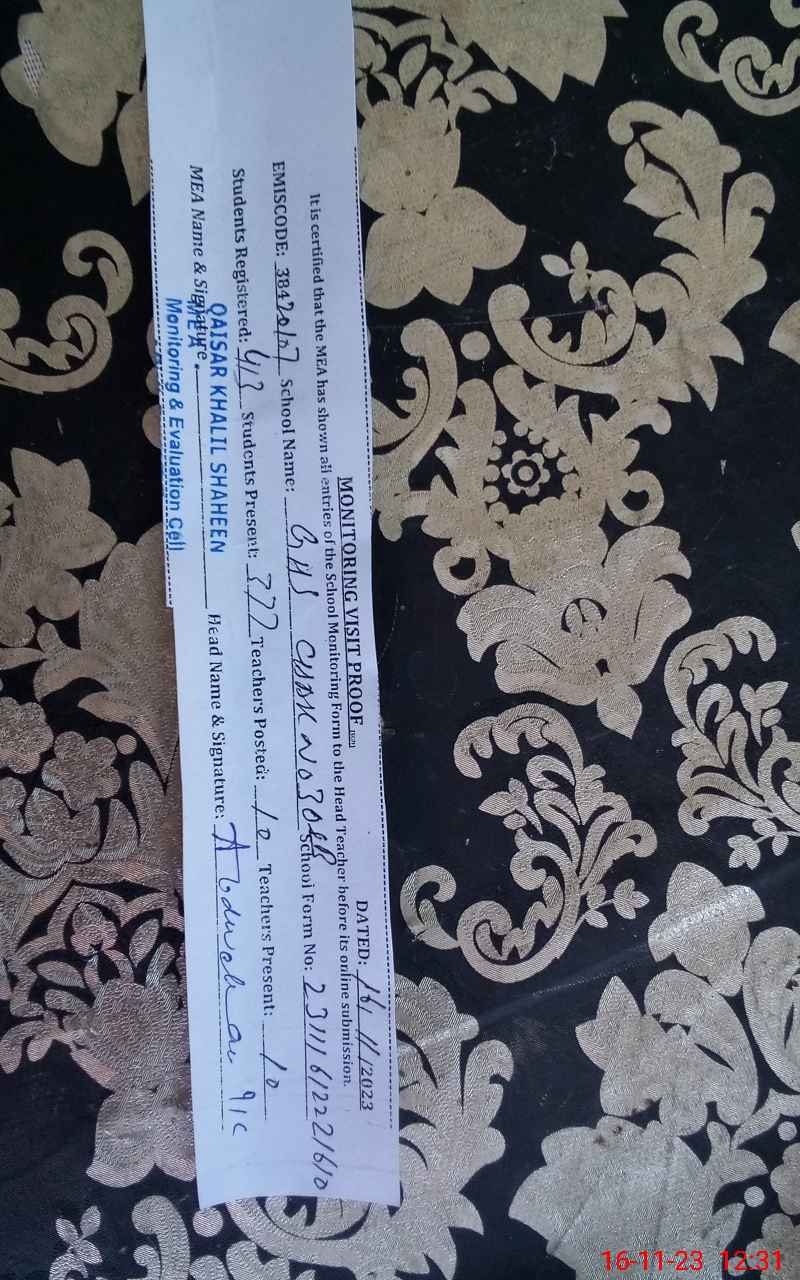 MONITORING VISIT PROOF
DATED: 16/11/2023
It is certified that the MEA has shown all entries of the School Monitoring Form to the Head Teacher before its online submission.
EMISCODE: 38420107 School Name: GHS CHAK NO 30 School Form No:
Students Registered: 413 Students Present: 372 Teachers Posted: 10 Teachers Present: 10
MEA Name & Signature. Head Name & Signature:
QAISAR KHALIL SHAHEEN
MEA
Monitoring & Evaluation Cell
16-11-23 12:31